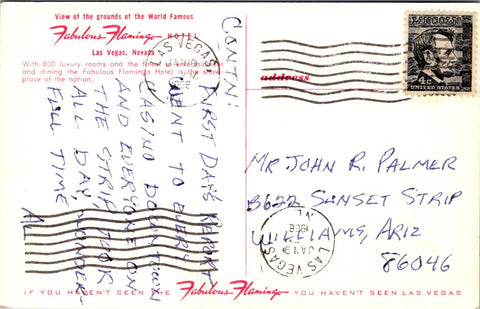 View of the grounds of the World Famous
Fabulous Flamingo HOTEL
Las Vegas, Nevada
With 800 luxury rooms and the finest in entertainment
and dining the Fabulous Flamingo Hotel is the show
place of the nation.
CONTN:
FIRST DAYS REPORT
WENT TO EVERY
CASINO DOWNTOWN
AND EVERYONE ON
THE STRIP. TOOK
ALL DAY, WONDER-
FULL TIME
AL
LAS VEGAS
JAN
LINCOLN
4c
UNITED STATES
address
MR JOHN R. PALMER
B622 SUNSET STRIP
WILLIAMS, ARIZ
86046
LAS VEGAS
JAN 9
IF YOU HAVEN'T SEEN THE Fabulous Flamingo YOU HAVEN'T SEEN LAS VEGAS